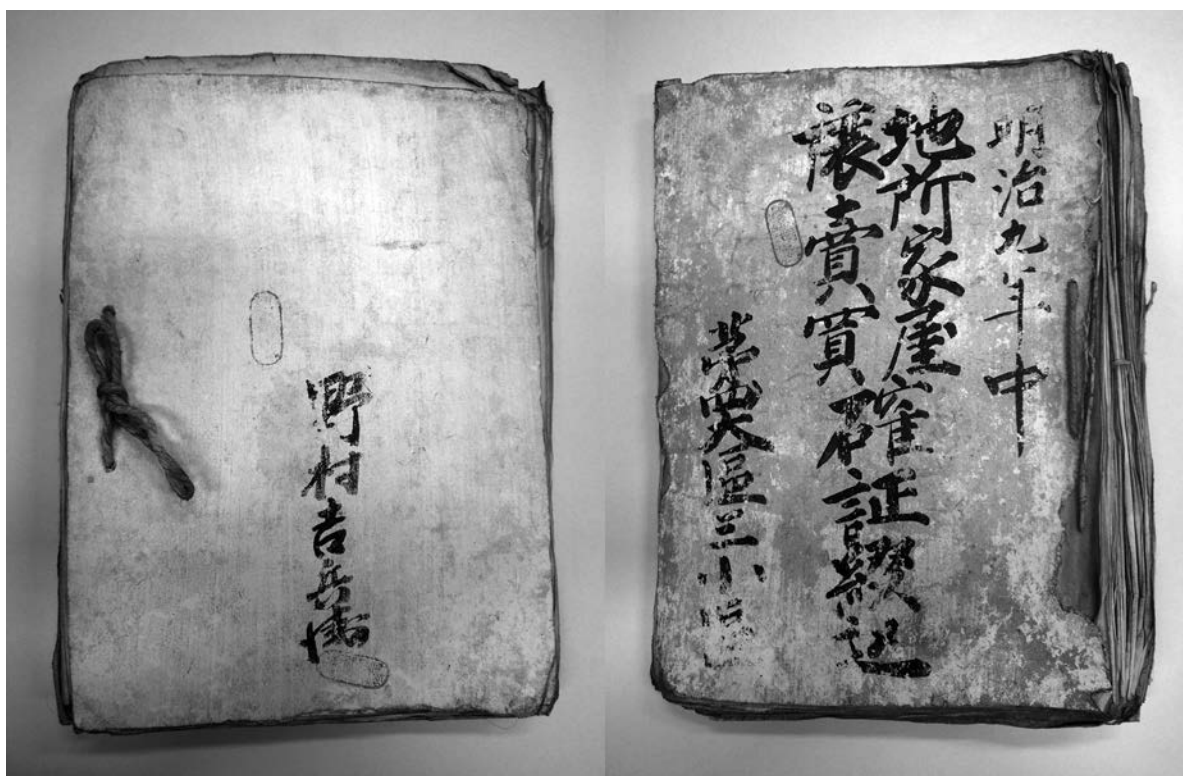 明治九年中
地所家屋
讓賣買
確証綴込
第四大區三小區
野村吉兵衛